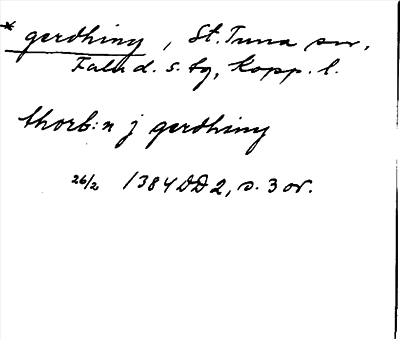 * gerdhiny, St. Tuna sn,
Falu d. s. tg, Kopp. l.
thorb:n j gerdhiny
26/2 1384 DD 2, s. 3 or.